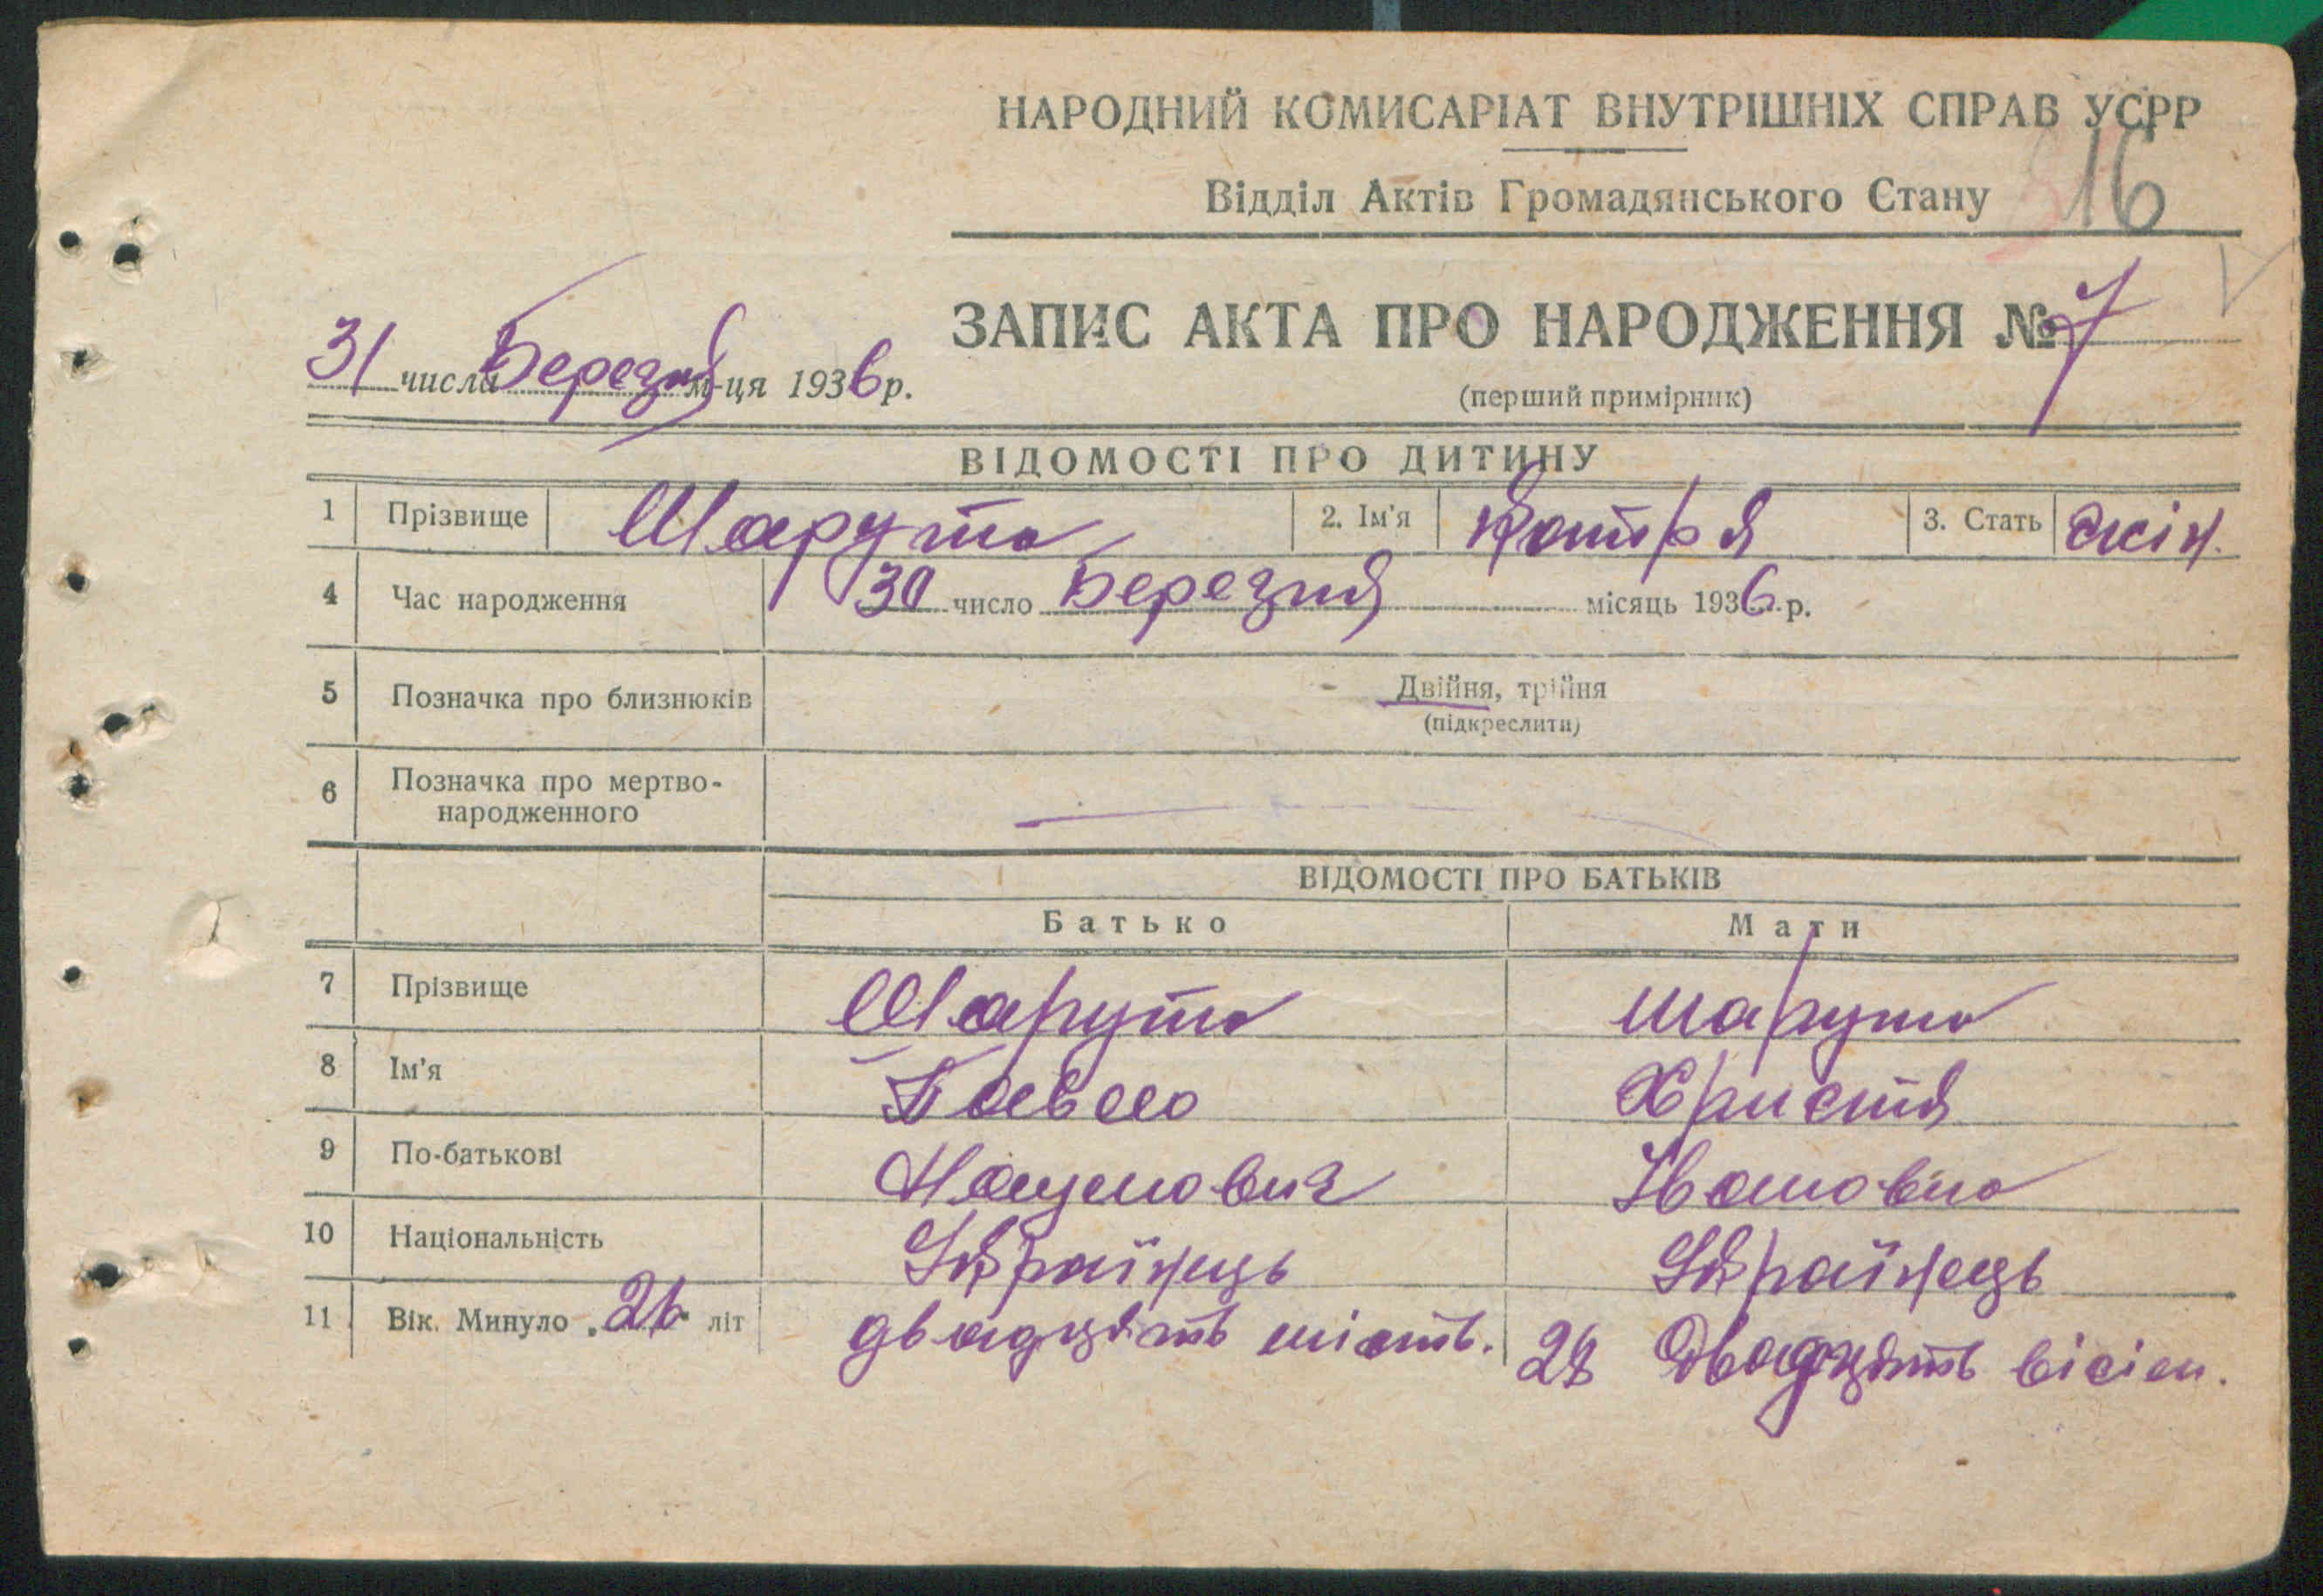 НАРОДНИЙ КОМИСАРІАТ ВНУТРІШНІХ СПРАВ УСРР
16
Відділ Актів Громадянського Стану
ЗАПИС АКТА ПРО НАРОДЖЕННЯ № 7
31 числа Березня м-ця 1936 р.
(перший примірник)
ВІДОМОСТІ ПРО ДИТИНУ
1 Прізвище Шарута 2. Ім'я Катря 3. Стать жін.
4 Час народження 30 число Березня місяць 1936 р.
5 Позначка про близнюків Двійня, трійня
(підкреслити)
6 Позначка про мертво-
народженного
ВІДОМОСТІ ПРО БАТЬКІВ
Батько Мати
7 Прізвище Шарута Шарута
8 Ім'я Павло Христя
9 По-батькові Наумович Івановна
10 Національність Українець Українець
11 Вік. Минуло 26 літ двадцять шість. 28 Двадцять вісім.